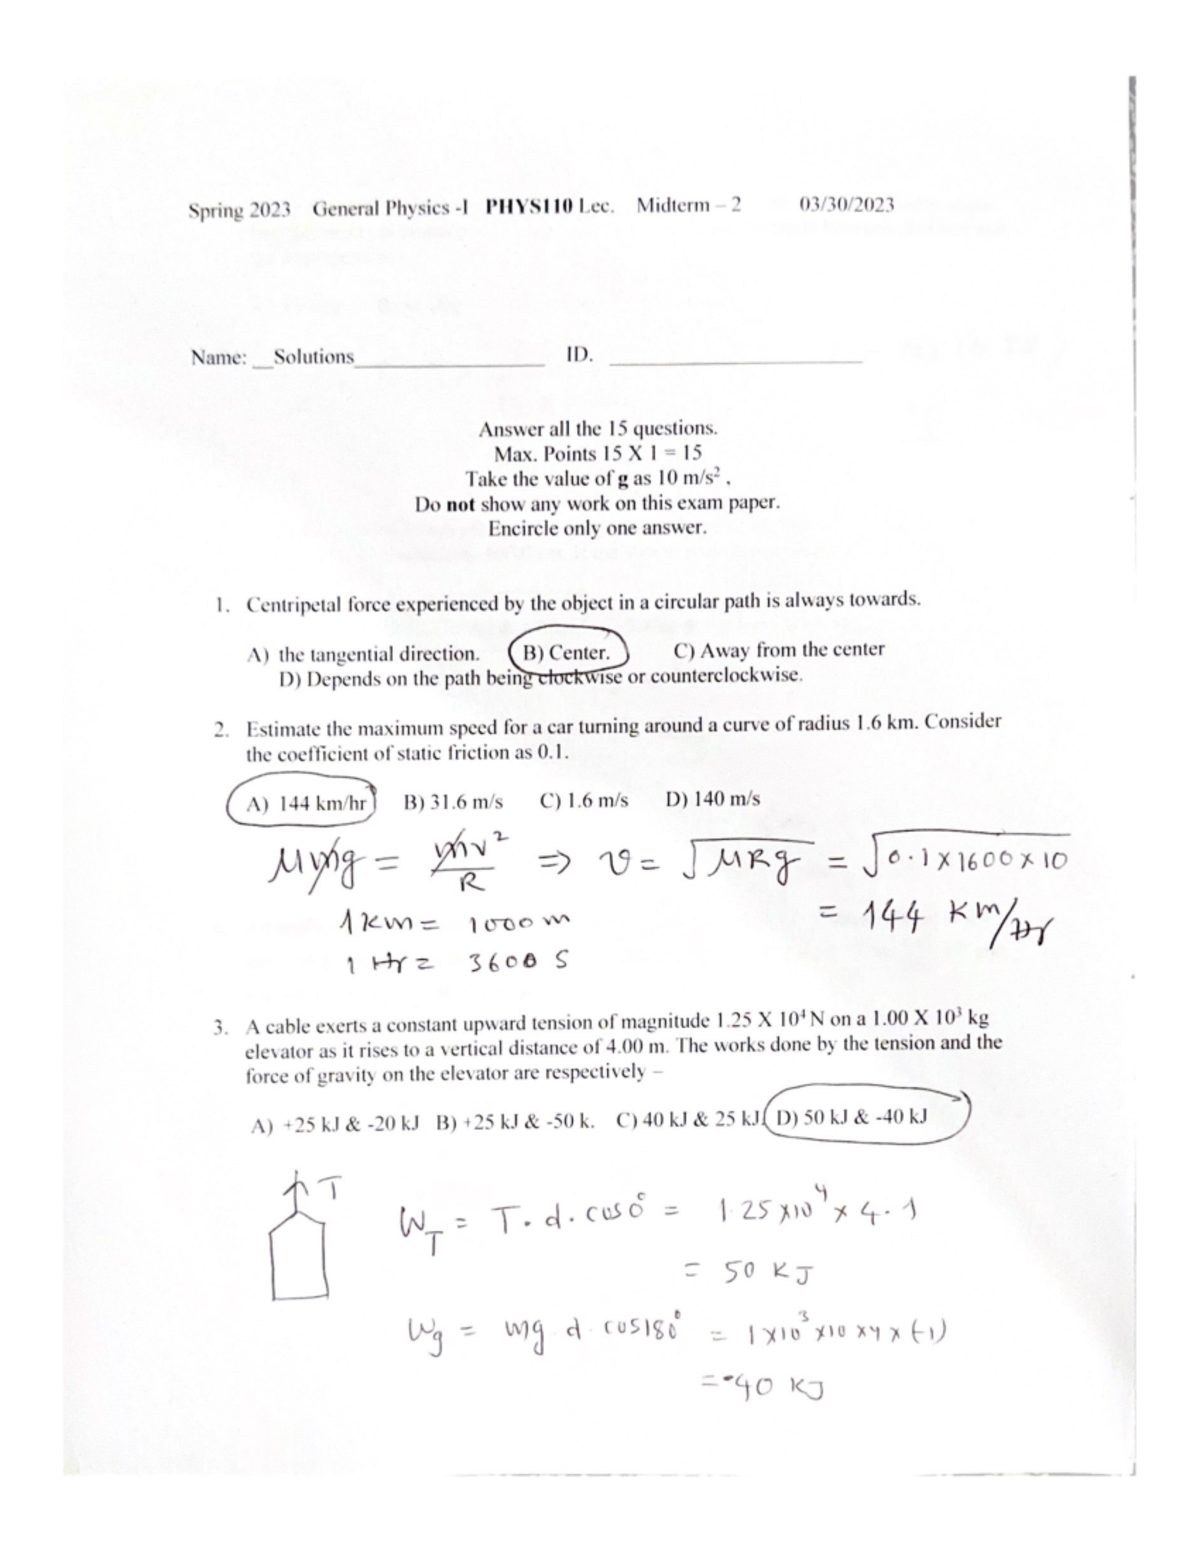 Spring 2023 General Physics -I PHYS110 Lec. Midterm – 2 03/30/2023
Name: __Solutions____________________ ID. __________________________
Answer all the 15 questions.
Max. Points 15 X 1 = 15
Take the value of g as 10 m/s² ,
Do not show any work on this exam paper.
Encircle only one answer.
1. Centripetal force experienced by the object in a circular path is always towards.
A) the tangential direction. B) Center. C) Away from the center
D) Depends on the path being clockwise or counterclockwise.
2. Estimate the maximum speed for a car turning around a curve of radius 1.6 km. Consider
the coefficient of static friction as 0.1.
A) 144 km/hr B) 31.6 m/s C) 1.6 m/s D) 140 m/s
μmg = mv²/R ⇒ v = √μRg = √0.1×1600×10
1 km = 1000 m = 144 Km/Hr
1 Hr = 3600 S
3. A cable exerts a constant upward tension of magnitude 1.25 X 10⁴ N on a 1.00 X 10³ kg
elevator as it rises to a vertical distance of 4.00 m. The works done by the tension and the
force of gravity on the elevator are respectively –
A) +25 kJ & -20 kJ B) +25 kJ & -50 k. C) 40 kJ & 25 kJ. D) 50 kJ & -40 kJ
T
W_T = T. d. cos 0° = 1.25 ×10⁴ × 4. 1
= 50 KJ
Wg = mg d. cos180° = 1×10³×10 ×4 × (-1)
= -40 KJ